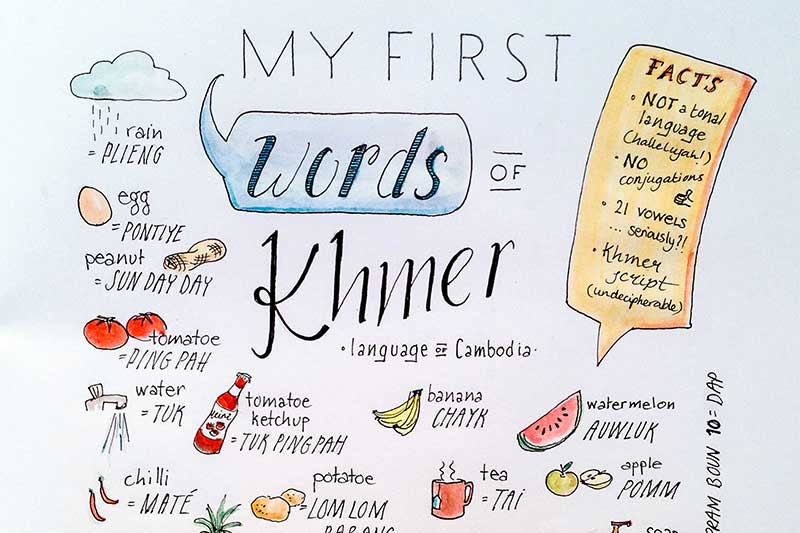 MY FIRST
Words OF
Khmer
·language OF Cambodia·
FACTS
• NOT a tonal
language
(hallelujah!)
• NO
conjugations
• 21 vowels
... seriously?!
• Khmer
script
(undecipherable)
rain
= PLIENG
egg
= PONTIYE
peanut
= SUN DAY DAY
tomatoe
= PING PAH
water
= TUK
Heinz
tomatoe
ketchup
= TUK PING PAH
banana
CHAYK
watermelon
AUWLUK
chilli
= MATÉ
potatoe
= LOM LOM
BARANG
tea
= TAI
apple
POMM
soap
PRAM BOUN 10 = DAP